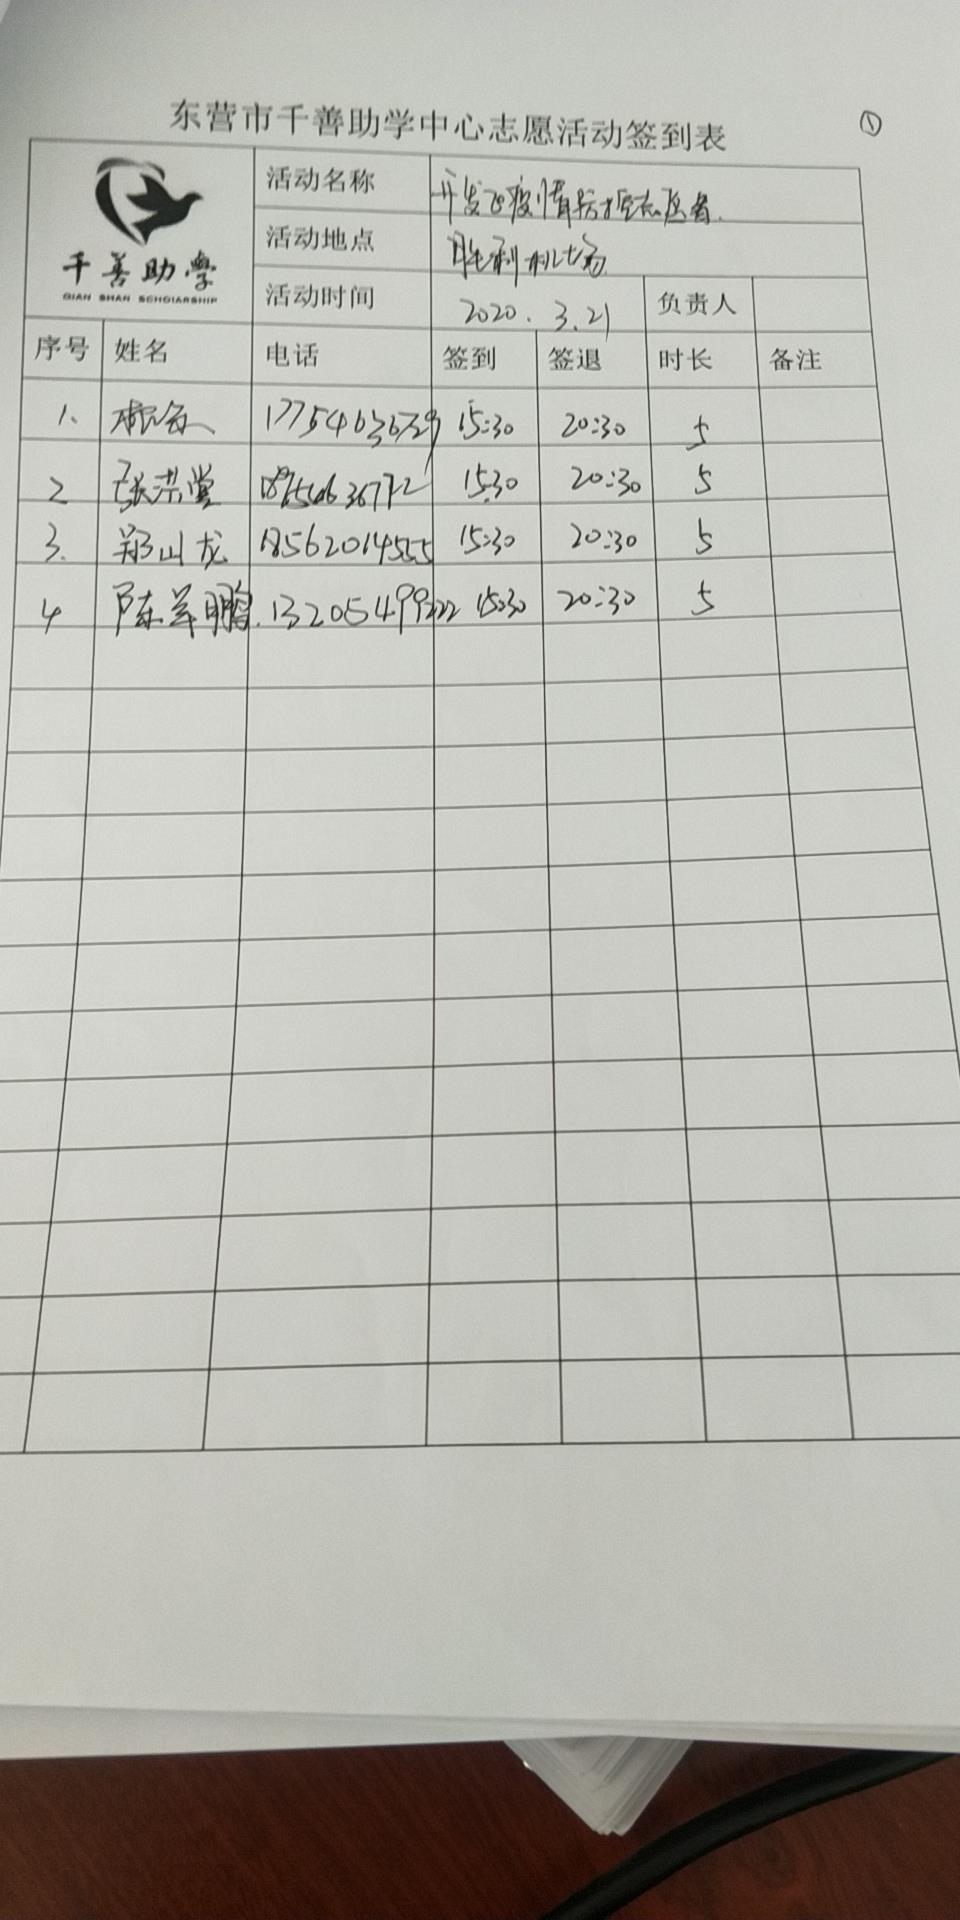 东营市千善助学中心志愿活动签到表
①
千善助學
QIAN SHAN SCHOLARSHIP
活动名称 开发区疫情防控志愿者
活动地点 胜利机场
活动时间 2020.3.21 负责人
序号 姓名 电话 签到 签退 时长 备注
1. 17754636729 15:30 20:30 5
2 张洪堂 15:30 20:30 5
3. 郑山龙 18562014555 15:30 20:30 5
4 陈军鹏 13205499222 15:30 20:30 5